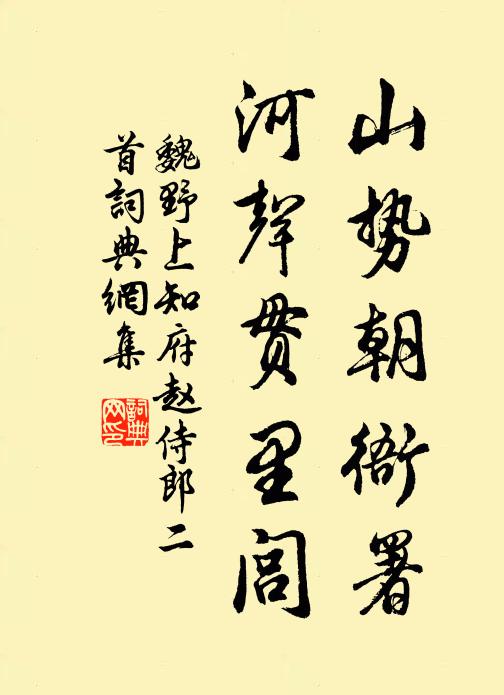 山势朝衙署
河聲贯里闾
魏野上知府赵侍郎二
首詞典網集
詞典网印